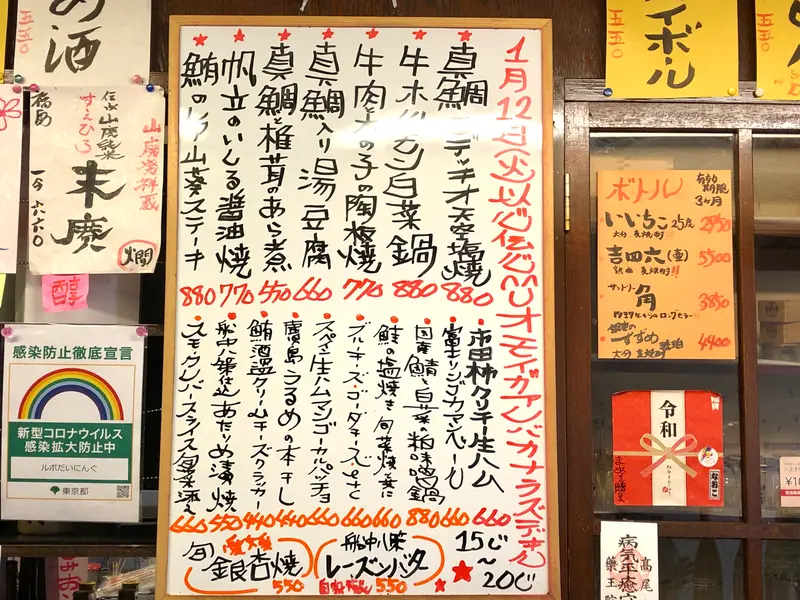 1月12日(火)以心伝心
オモイガアレバカナラズデキル
真鯛 天空塩焼 880
牛ホルモン白菜鍋 880
牛肉と 陶板焼 770
真鯛入り湯豆腐 660
真鯛と椎茸のあら煮 550
帆立のいしる醤油焼 770
鮪のレア山葵ステーキ 880
市田柿クリチー生ハム 660
富士リンゴカマンベール 660
国産鯖と白菜の粕味噌鍋 880
鮭の塩焼き 660
ブルーチーズ・ゴーダチーズ 660
スペイン生ハムマンゴーカルパッチョ 660
廣島うるめの本干し 440
鮪酒盗クリームチーズクラッカー 440
船中八策仕込あたりめ漬焼 550
スモークサーモンスライス 660
旬 銀杏焼 550
船中八策 レーズンバタ 550
15じ〜20じ
酒
五五〇
山廃
すえひろ
末廣
燗
醇
感染防止徹底宣言
新型コロナウイルス
感染拡大防止中
ルポだいにんぐ
東京都
五五〇
イボール
ボトル
有効期限
3ヶ月
いいちこ 25度 2950
吉四六(壷) 5500
サントリー
角 3850
すずめ 4400
令和
なおこ
病気平癒
高尾
薬王院